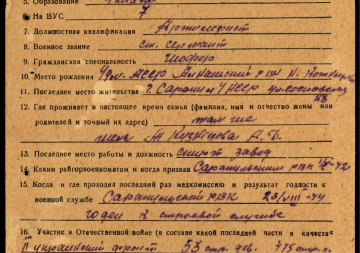 5. Образование
6. На ВУС 7
7. Должностная квалификация Артиллерист
8. Военное звание ст. сержант
9. Гражданская специальность шофер
10. Место рождения Удм. АССР
11. Последнее место жительства г. Сарапул УАССР
12. Где проживает в настоящее время семья (фамилия, имя и отчество жены или
родителей и точный их адрес) там же
жена
13. Последнее место работы и должность спирт завод
14. Каким райгорвоенкоматом и когда призван Сарапульским РВК
15. Когда и где проходил последний раз медкомиссию и результат годности к
военной службе Сарапульский РВК 23/VIII-44
годен к строевой службе
16. Участие в Отечественной войне (в составе какой последней части в качестве
II украинский фронт 53 стр. див.